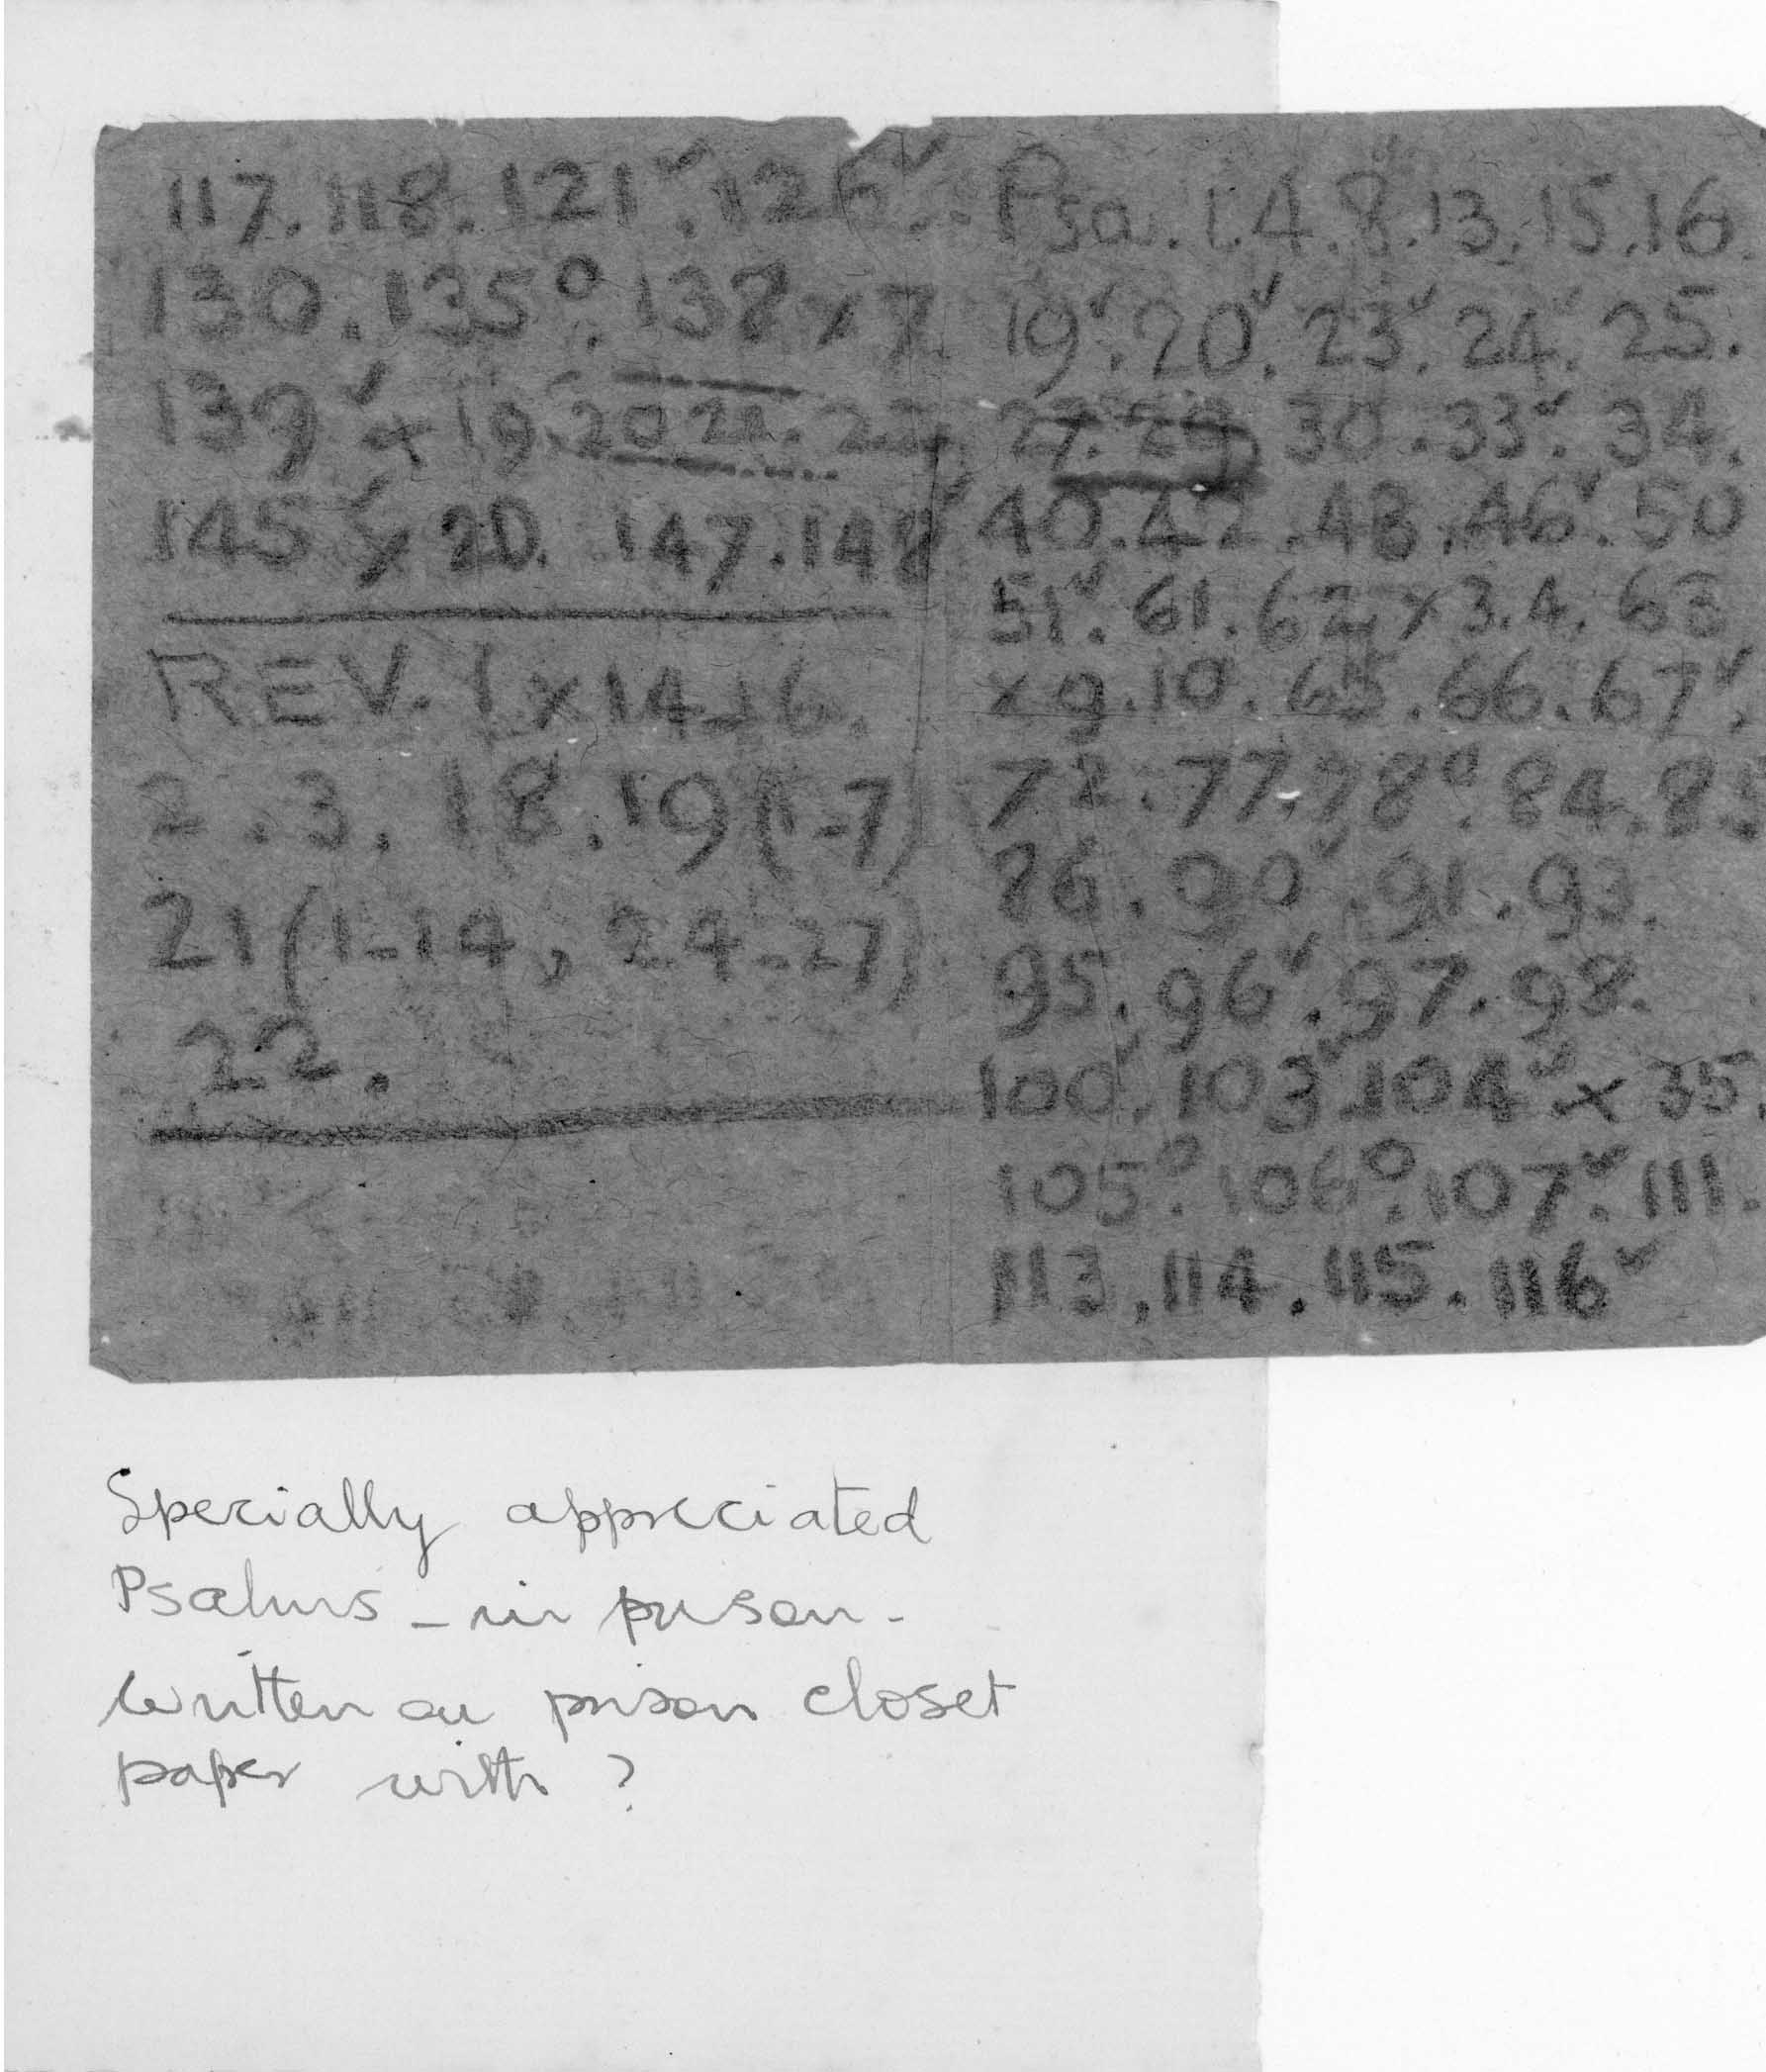 Psa. 1.4.8✓.13.15.16.
19✓.20✓.23✓.24✓.25.
27.29 30.33✓.34.
40.42.43.46✓.50
51✓.61.62 x 3.4.63
x 9.10.65.66.67✓.
72.77.78°.84.85
86.90✓.91.93.
95.96✓.97.98.
100✓.103✓.104✓ x 35.
105°.106°.107✓.111.
113.114.115.116✓
117.118.121✓.126✓.
130.135°.138 x 7
139✓ x 19.20 21.22.
145✓ x 20. 147.148✓
REV. 1 x 14-16.
2.3.18.19(1-7)
21(1-14, 24-27)
22.
Specially appreciated
Psalms - in prison -
written on prison closet
paper with ?